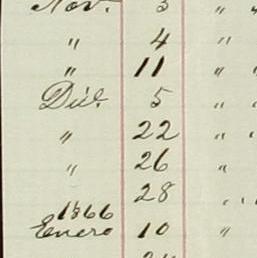 Nov. 3 "
" 4 "
" 11 " "
Dic. 5 " "
" 22 " "
" 26 "
28 " "
1866
Enero 10 "